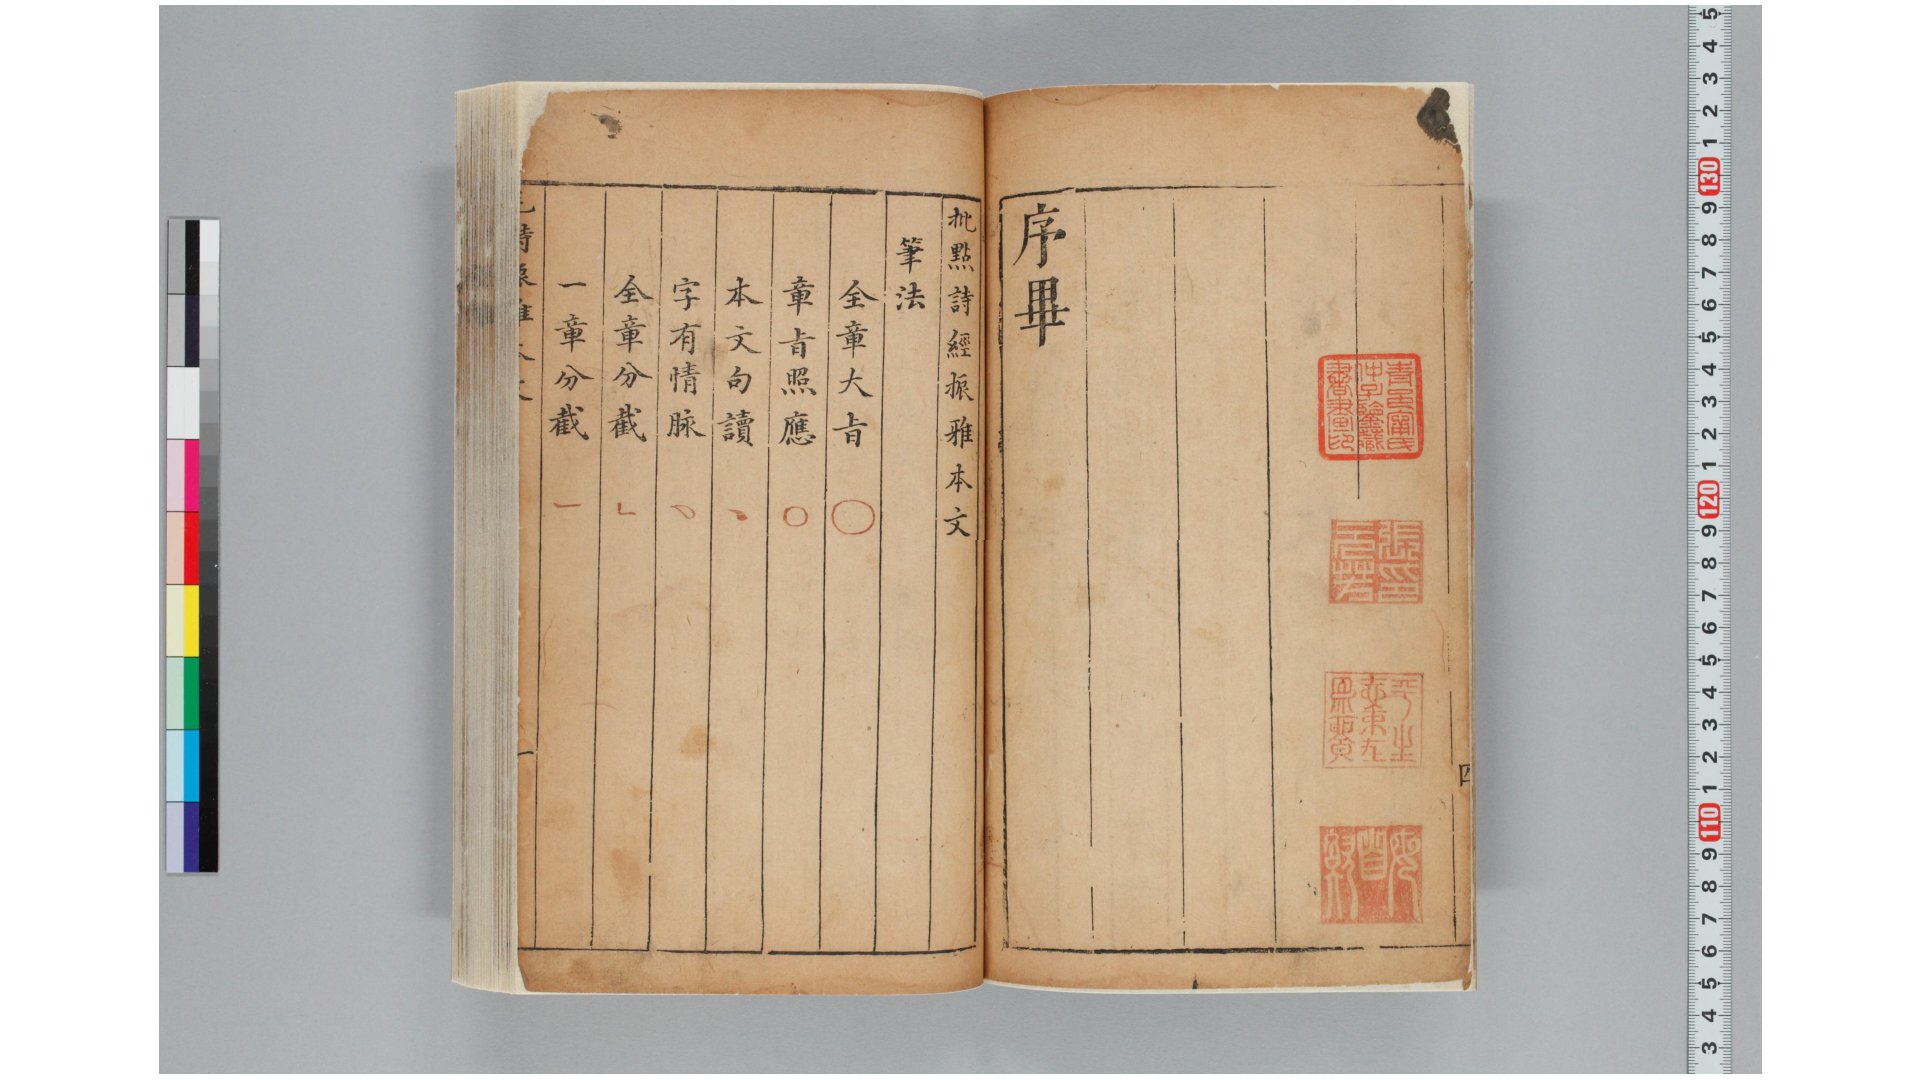 序畢
四
批點詩經振雅本文
筆法
全章大旨
章旨照應
本文句讀
字有情脉
全章分截
一章分截
一
5 4 3 2 1 130 9 8 7 6 5 4 3 2 1 120 9 8 7 6 5 4 3 2 1 110 9 8 7 6 5 4 3